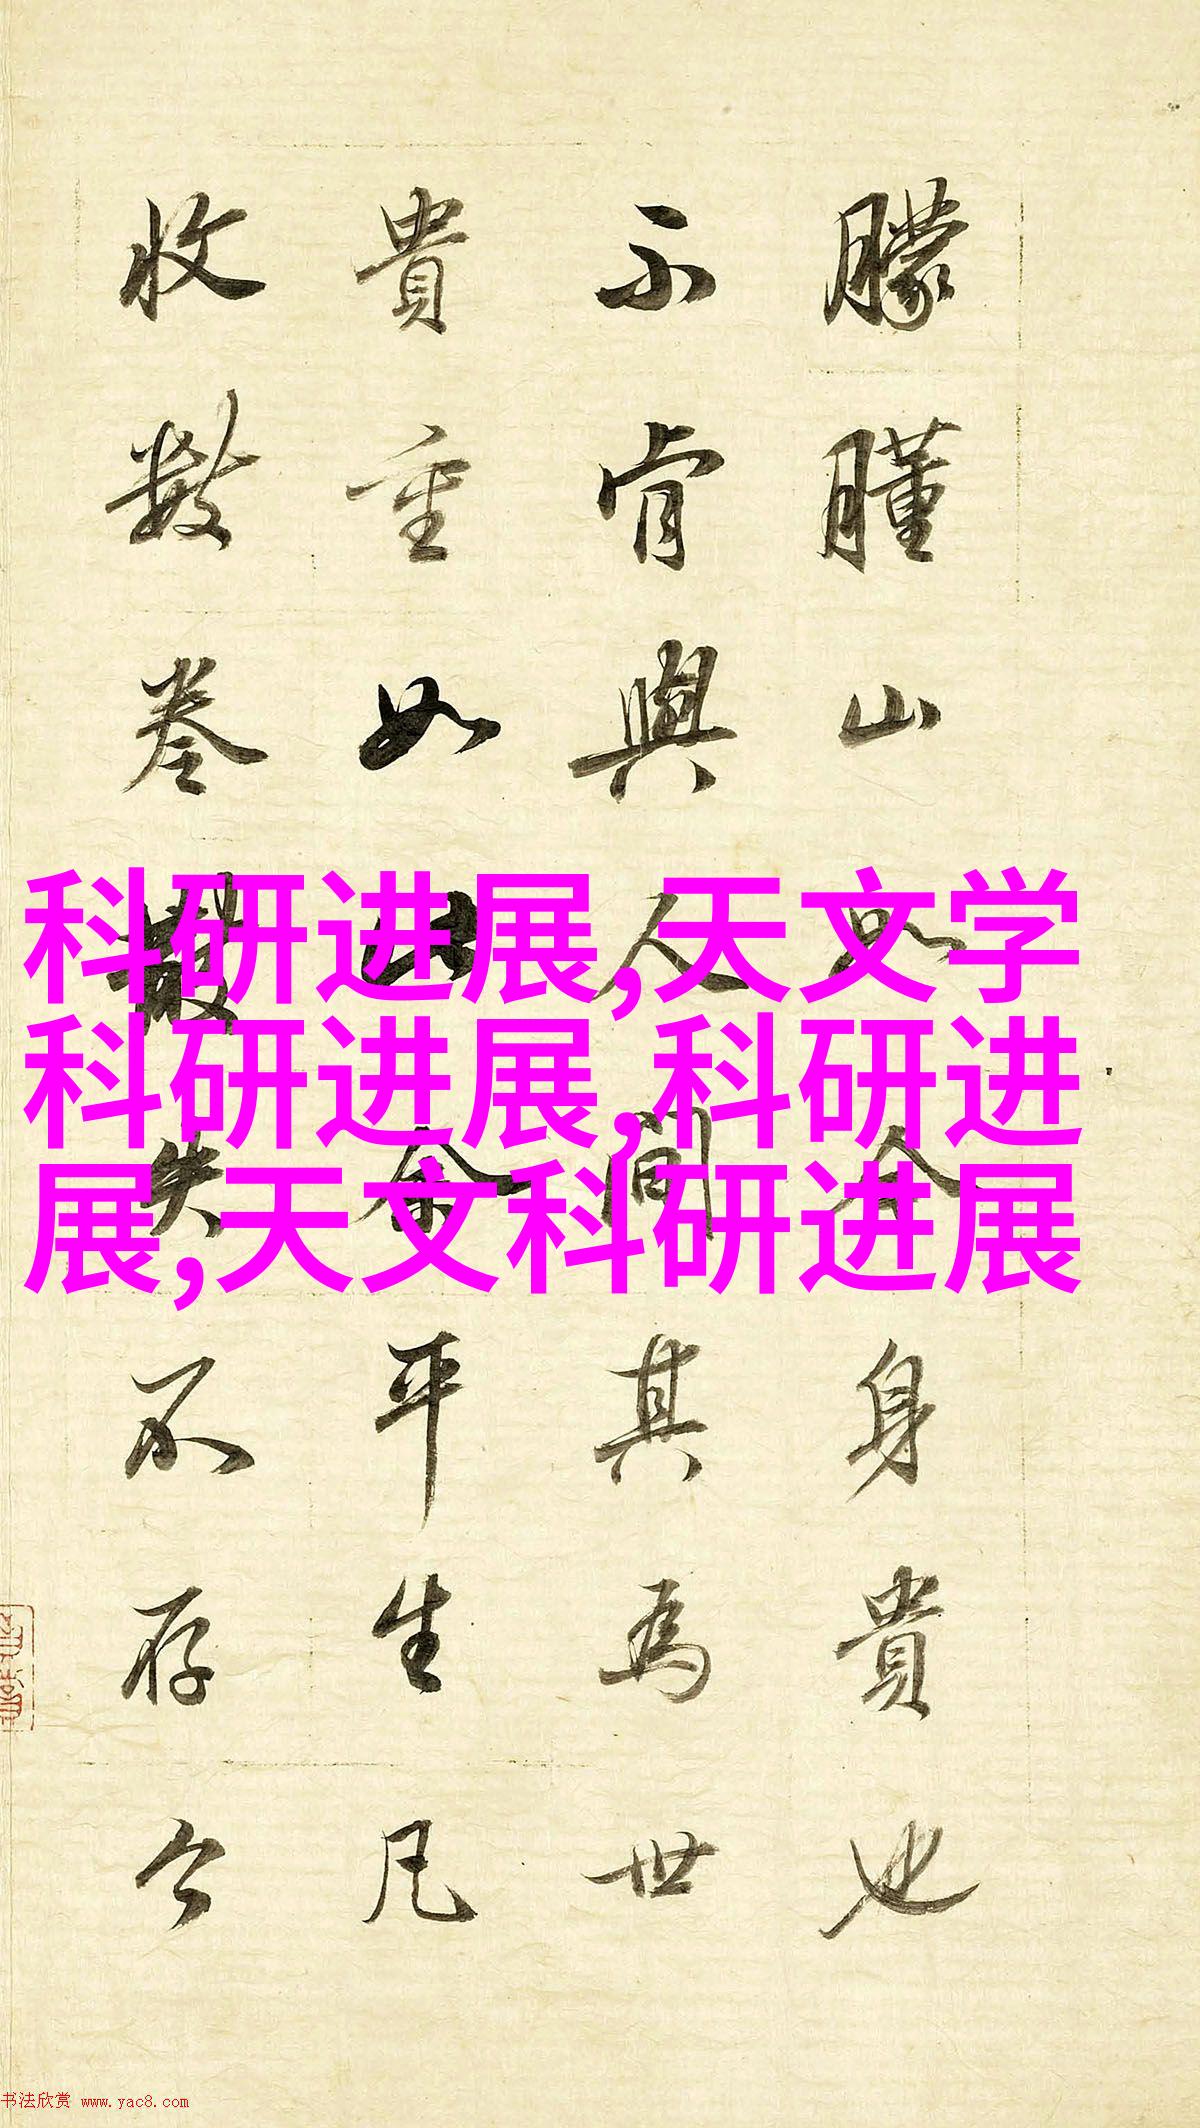 朦朣山以全身貴也
不肯與人間其為世
貴重如此余平生凡
收數卷散失不存今
科研进展,天文学
科研进展,科研进
展,天文科研进展
书法欣赏 www.yac8.com